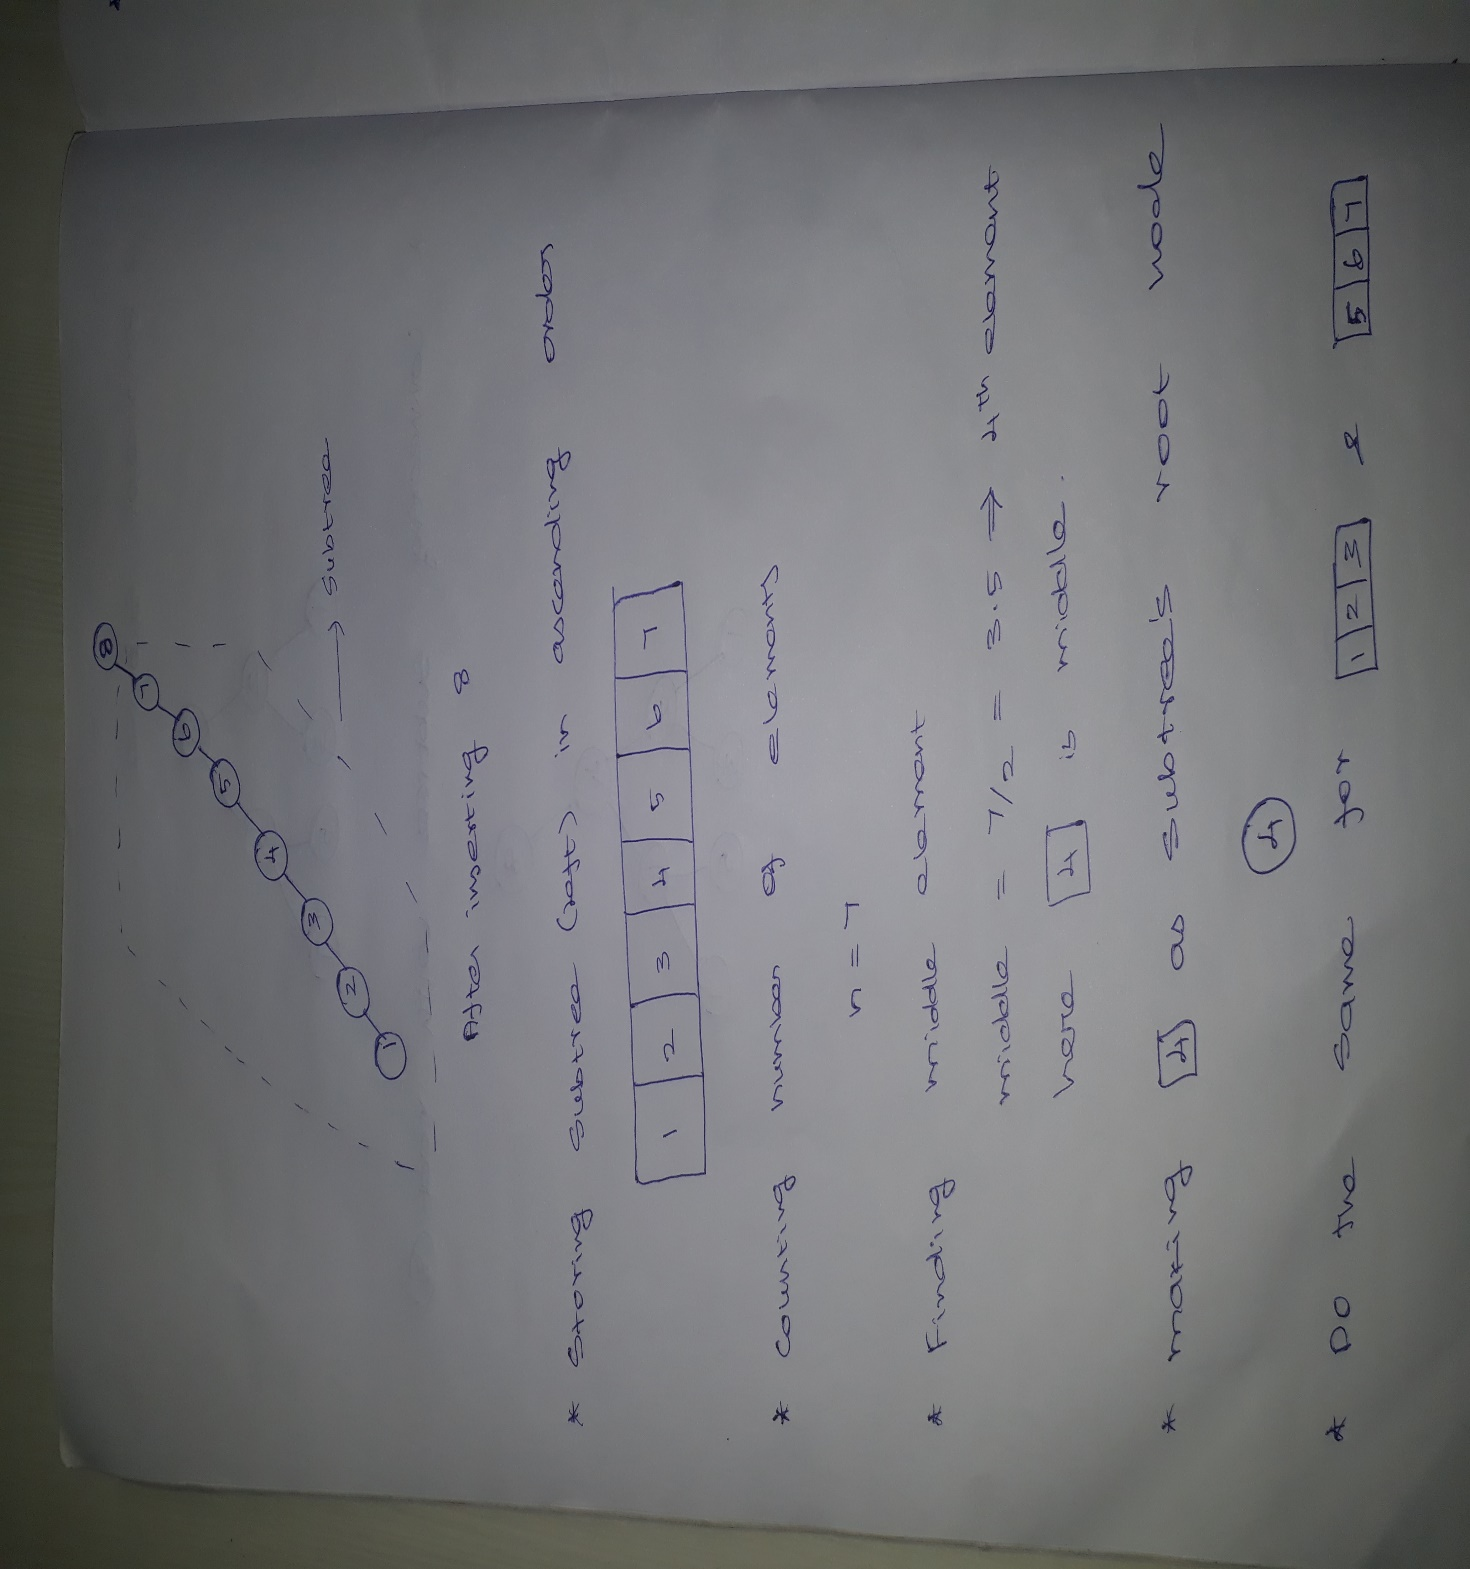 8
7
6
5
4
3
2
1
→ Subtree
After inserting 8
* Storing Subtree (left) in ascending order
1 2 3 4 5 6 7
* Counting number of elements
n = 7
* Finding middle element
middle = 7/2 = 3.5 ⇒ 4th element
here 4 is middle.
* making 4 as subtree's root node
4
* Do the same for 1 2 3 & 5 6 7